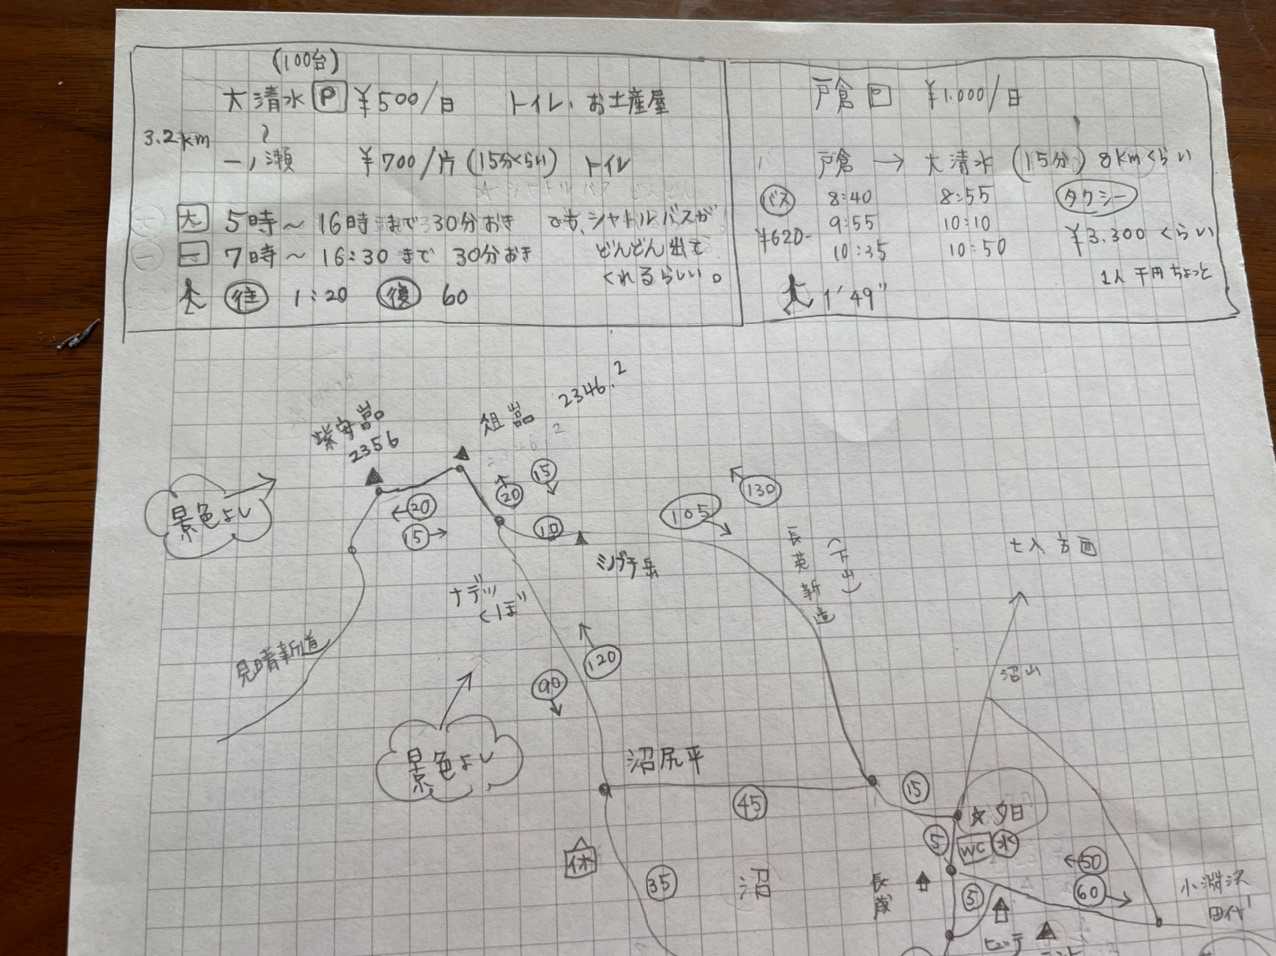 (100台)
大清水 P ¥500/日 トイレ、お土産屋
3.2km 〜
一ノ瀬 ¥700/片 (15分くらい) トイレ
大 5時〜16時まで30分おき でも、シャトルバスが
一 7時〜16:30まで 30分おき どんどん出て
くれるらしい。
往 1:20 復 60
戸倉 P ¥1.000/日
戸倉 → 大清水 (15分) 8kmくらい
バス 8:40 8:55 タクシー
¥620- 9:55 10:10 ¥3.300くらい
10:35 10:50
1人千円ちょっと
1'49"
柴安嵓
2356
俎嵓 2346.2
景色よし
←20
15→
20
15
10
ミノブチ岳
105
130
長英新道
(下山)
七入方面
ナデッ
くぼ
見晴新道
120
90
沼山
景色よし
沼尻平
45
15
☆夕日
5
WC 水
休
35
沼
長蔵
←50
60
小淵沢
田代
5
ヒュッテ